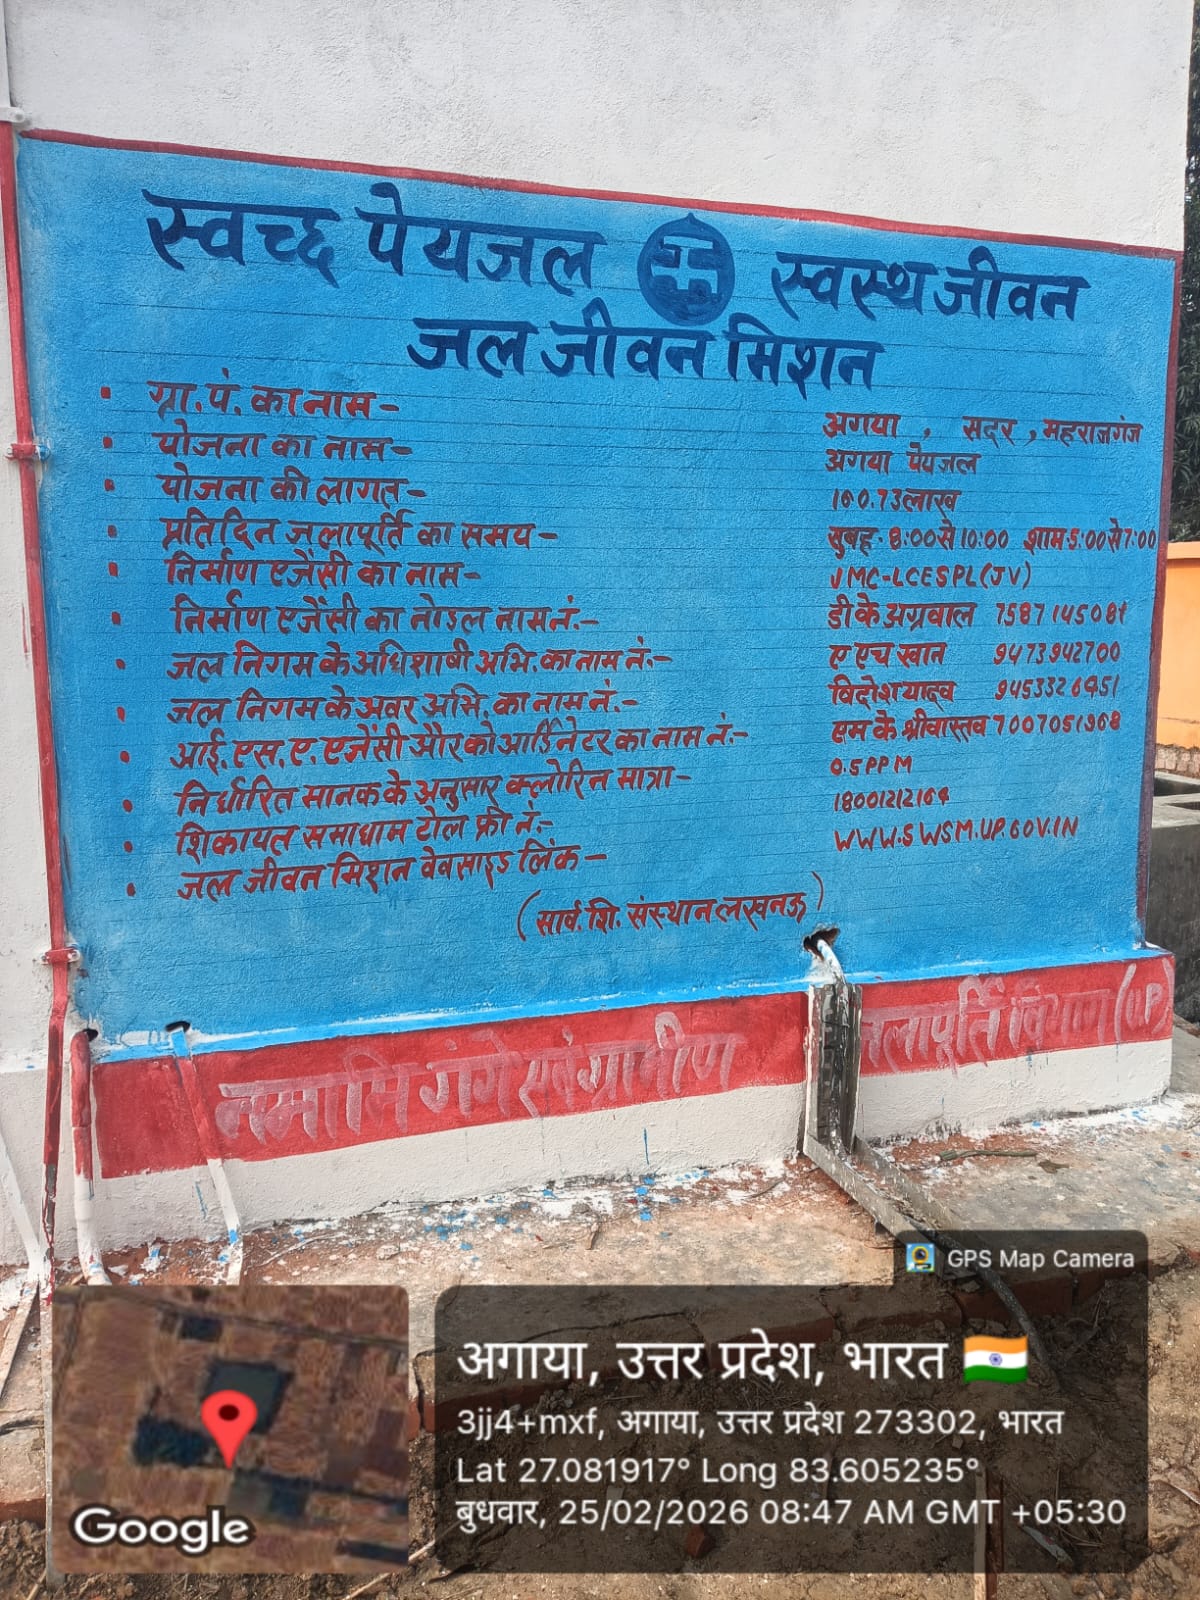 स्वच्छ पेयजल स्वस्थ जीवन
जल जीवन मिशन
ग्रा.पं. का नाम- अगया , सदर , महराजगंज
योजना का नाम- अगया पेयजल
योजना की लागत- 160.73 लाख
प्रतिदिन जलापूर्ति का समय- सुबह- 8:00 से 10:00 शाम-5:00 से 7:00
निर्माण एजेंसी का नाम- JMC-LCESPL(JV)
निर्माण एजेंसी का नोडल नाम नं.- डी के अग्रवाल
जल निगम के अधिशाषी अभि. का नाम नं.- ए एच खान 9473942700
जल निगम के अवर अभि. का नाम नं.- यादव
आई.एस.ए. एजेंसी और कोआर्डिनेटर का नाम नं.- एम के श्रीवास्तव 7007051968
निर्धारित मानक के अनुसार क्लोरिन मात्रा- 0.5PPM
शिकायत समाधाम टोल फ्री नं.- 18001212164
जल जीवन मिशन वेबसाइड लिंक- WWW.SWSM.UP.GOV.IN
(सार्व. शि. संस्थान लखनऊ)
नमामि गंगे एबं ग्रामीण जलापूर्ति विभाग (U.P)
GPS Map Camera
अगाया, उत्तर प्रदेश, भारत
3jj4+mxf, अगाया, उत्तर प्रदेश 273302, भारत
Lat 27.081917° Long 83.605235°
बुधवार, 25/02/2026 08:47 AM GMT +05:30
Google